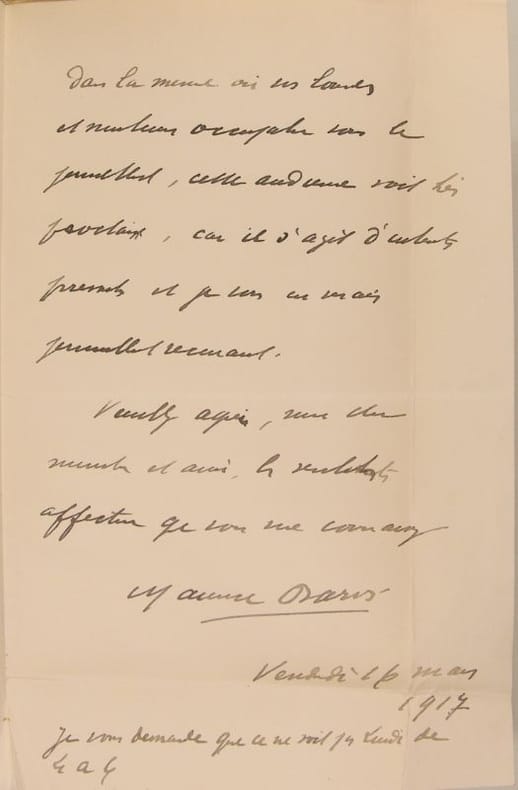 Dans la mesure où vos lourdes
et nombreuses occupations vous le
permettent, cette audience soit très
prochaine, car il s'agit d'intérêts
pressants et je vous en serais
personnellement reconnaissant.
Veuillez agréer, mon cher
ministre et ami, les sentiments
affectueux que vous me connaissez
Maurice Barrès
Vendredi 16 mars
1917
Je vous demande que ce ne soit pas Lundi de
4 à 5